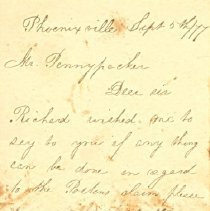 Phoenixville Sept 5th/77
Mr. Pennypacker
Dear sir
Richard wished me to
say to you if any thing
can be done in regard
to the claim please